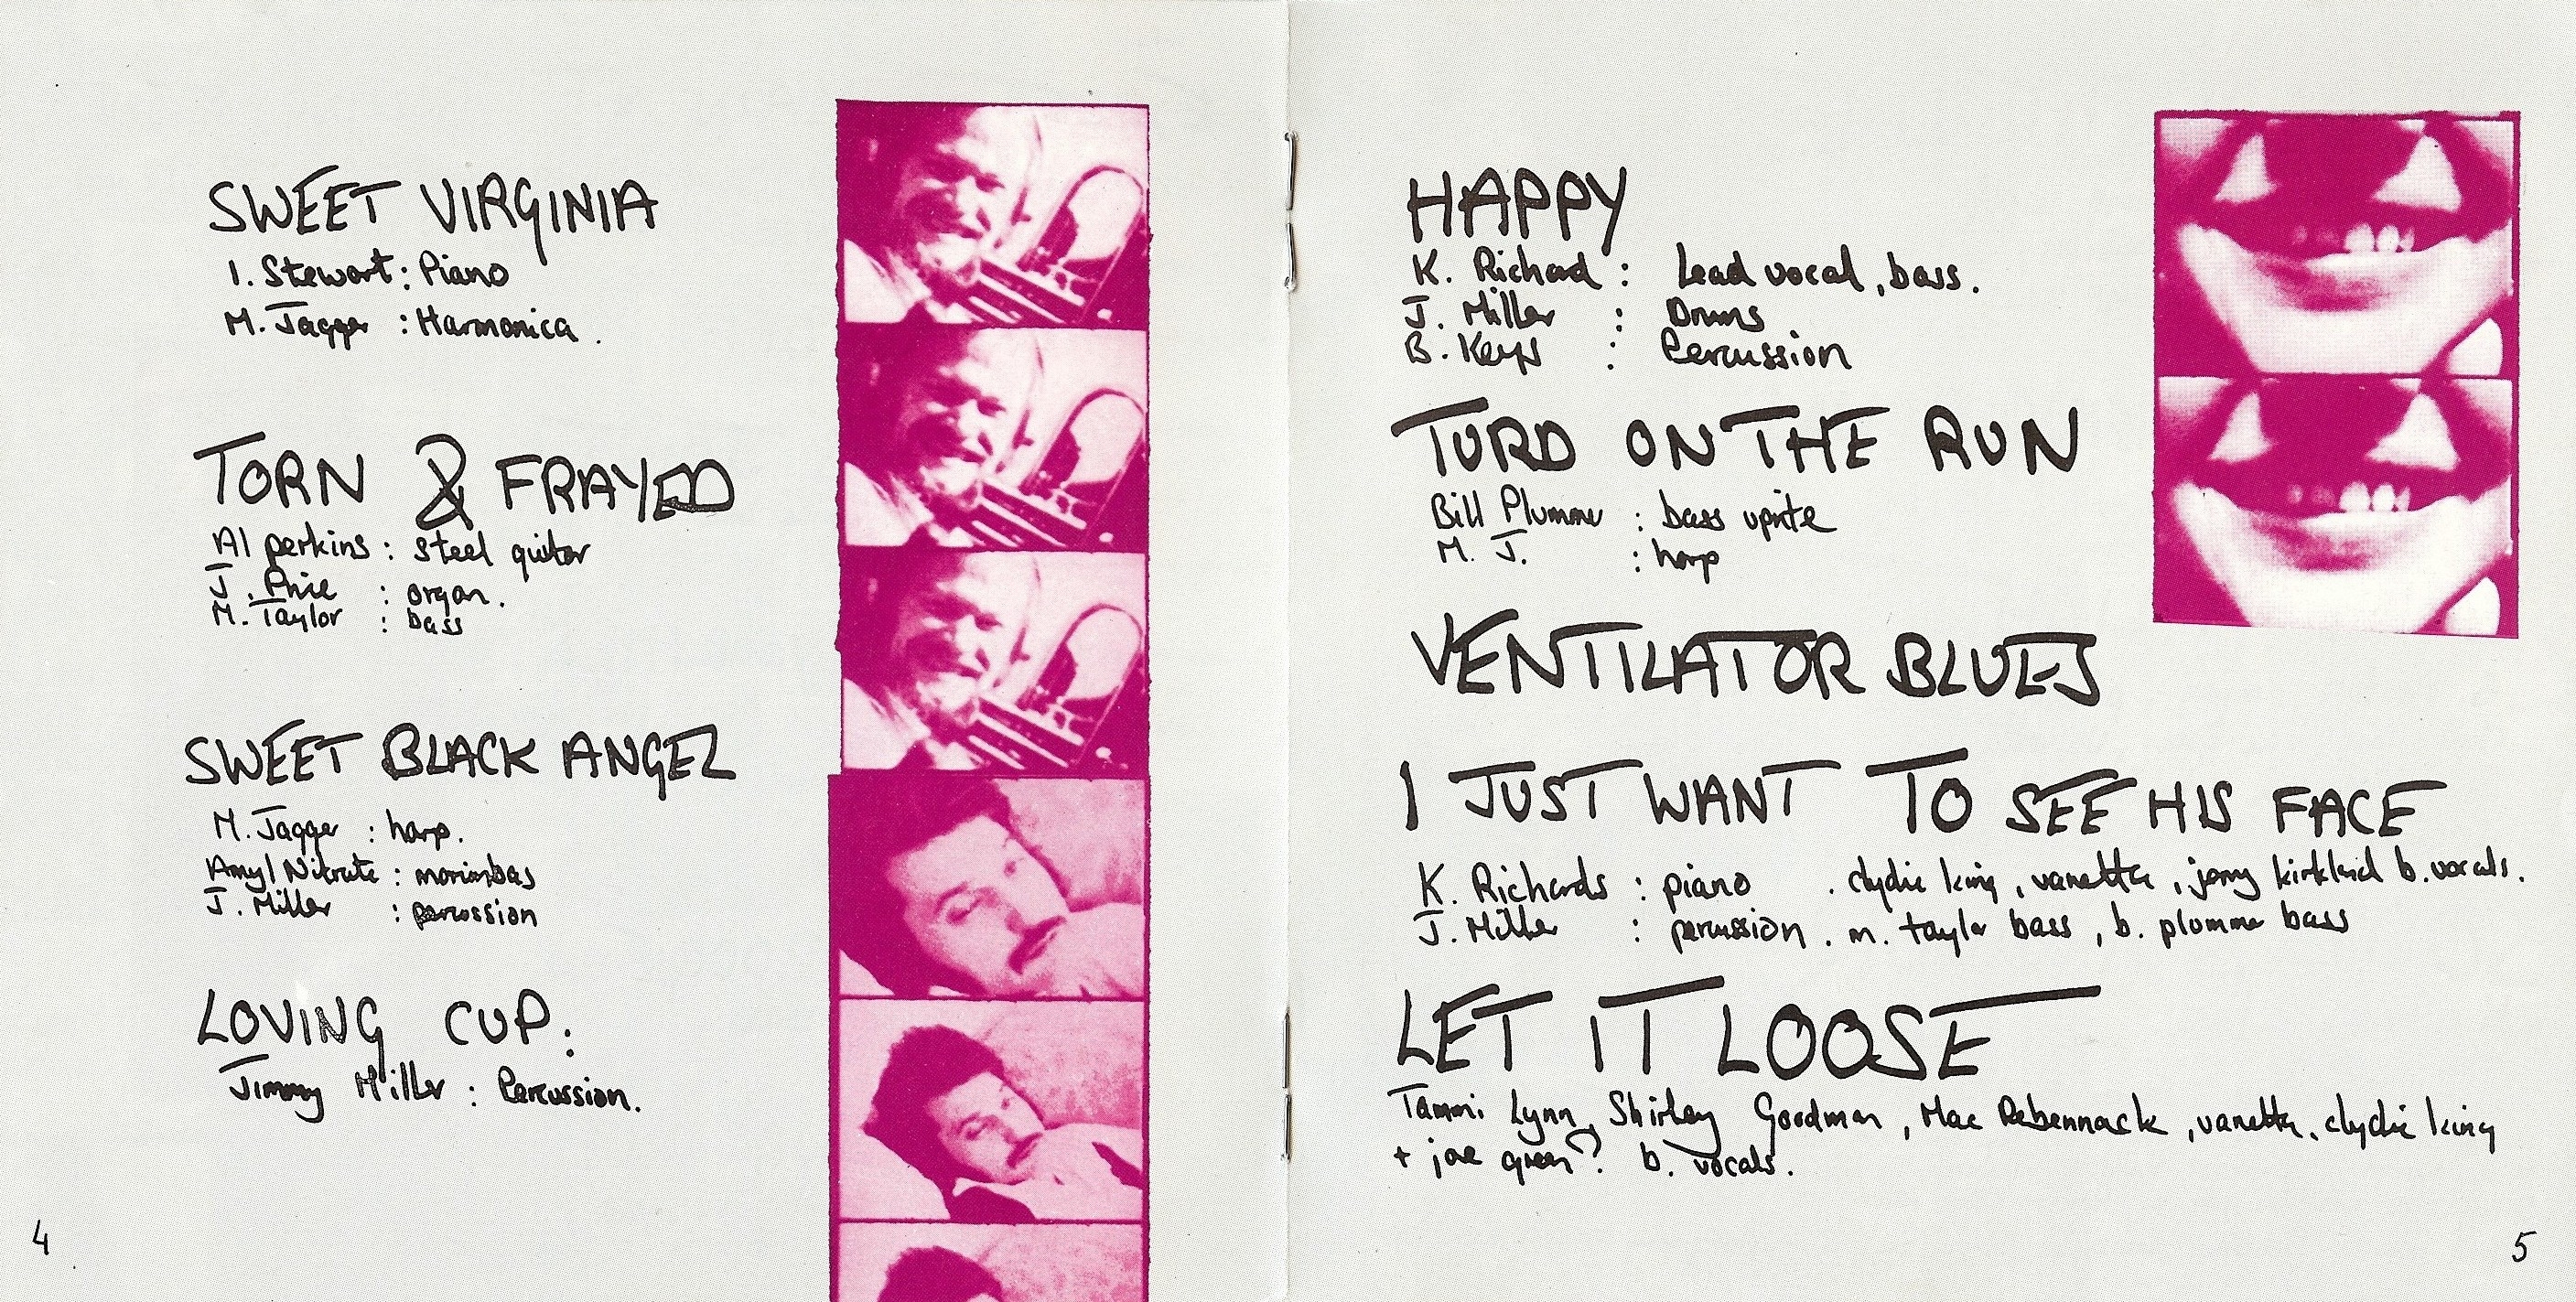 SWEET VIRGINIA
I. Stewart : Piano
M. Jagger : Harmonica .
TORN & FRAYED
Al perkins : steel guitar
J. Price : organ .
M. Taylor : bass
SWEET BLACK ANGEL
M. Jagger : harp .
Amyl Nitrate : marimbas
J. Miller : percussion
LOVING CUP :
Jimmy Miller : Percussion .
4
HAPPY
K. Richard : Lead vocal , bass .
J. Miller : Drums
B. Keys : Percussion
TURD ON THE RUN
Bill Plummer : bass uprite
M. J. : harp
VENTILATOR BLUES
I JUST WANT TO SEE HIS FACE
K. Richards : piano . clydie king , vanetta , jerry kirkland b. vocals .
J. Miller : percussion . m. taylor bass , b. plummer bass
LET IT LOOSE
Tammi Lynn , Shirley Goodman , Mac Rebennack , vanetta , clydie king
+ joe green ? b. vocals .
5